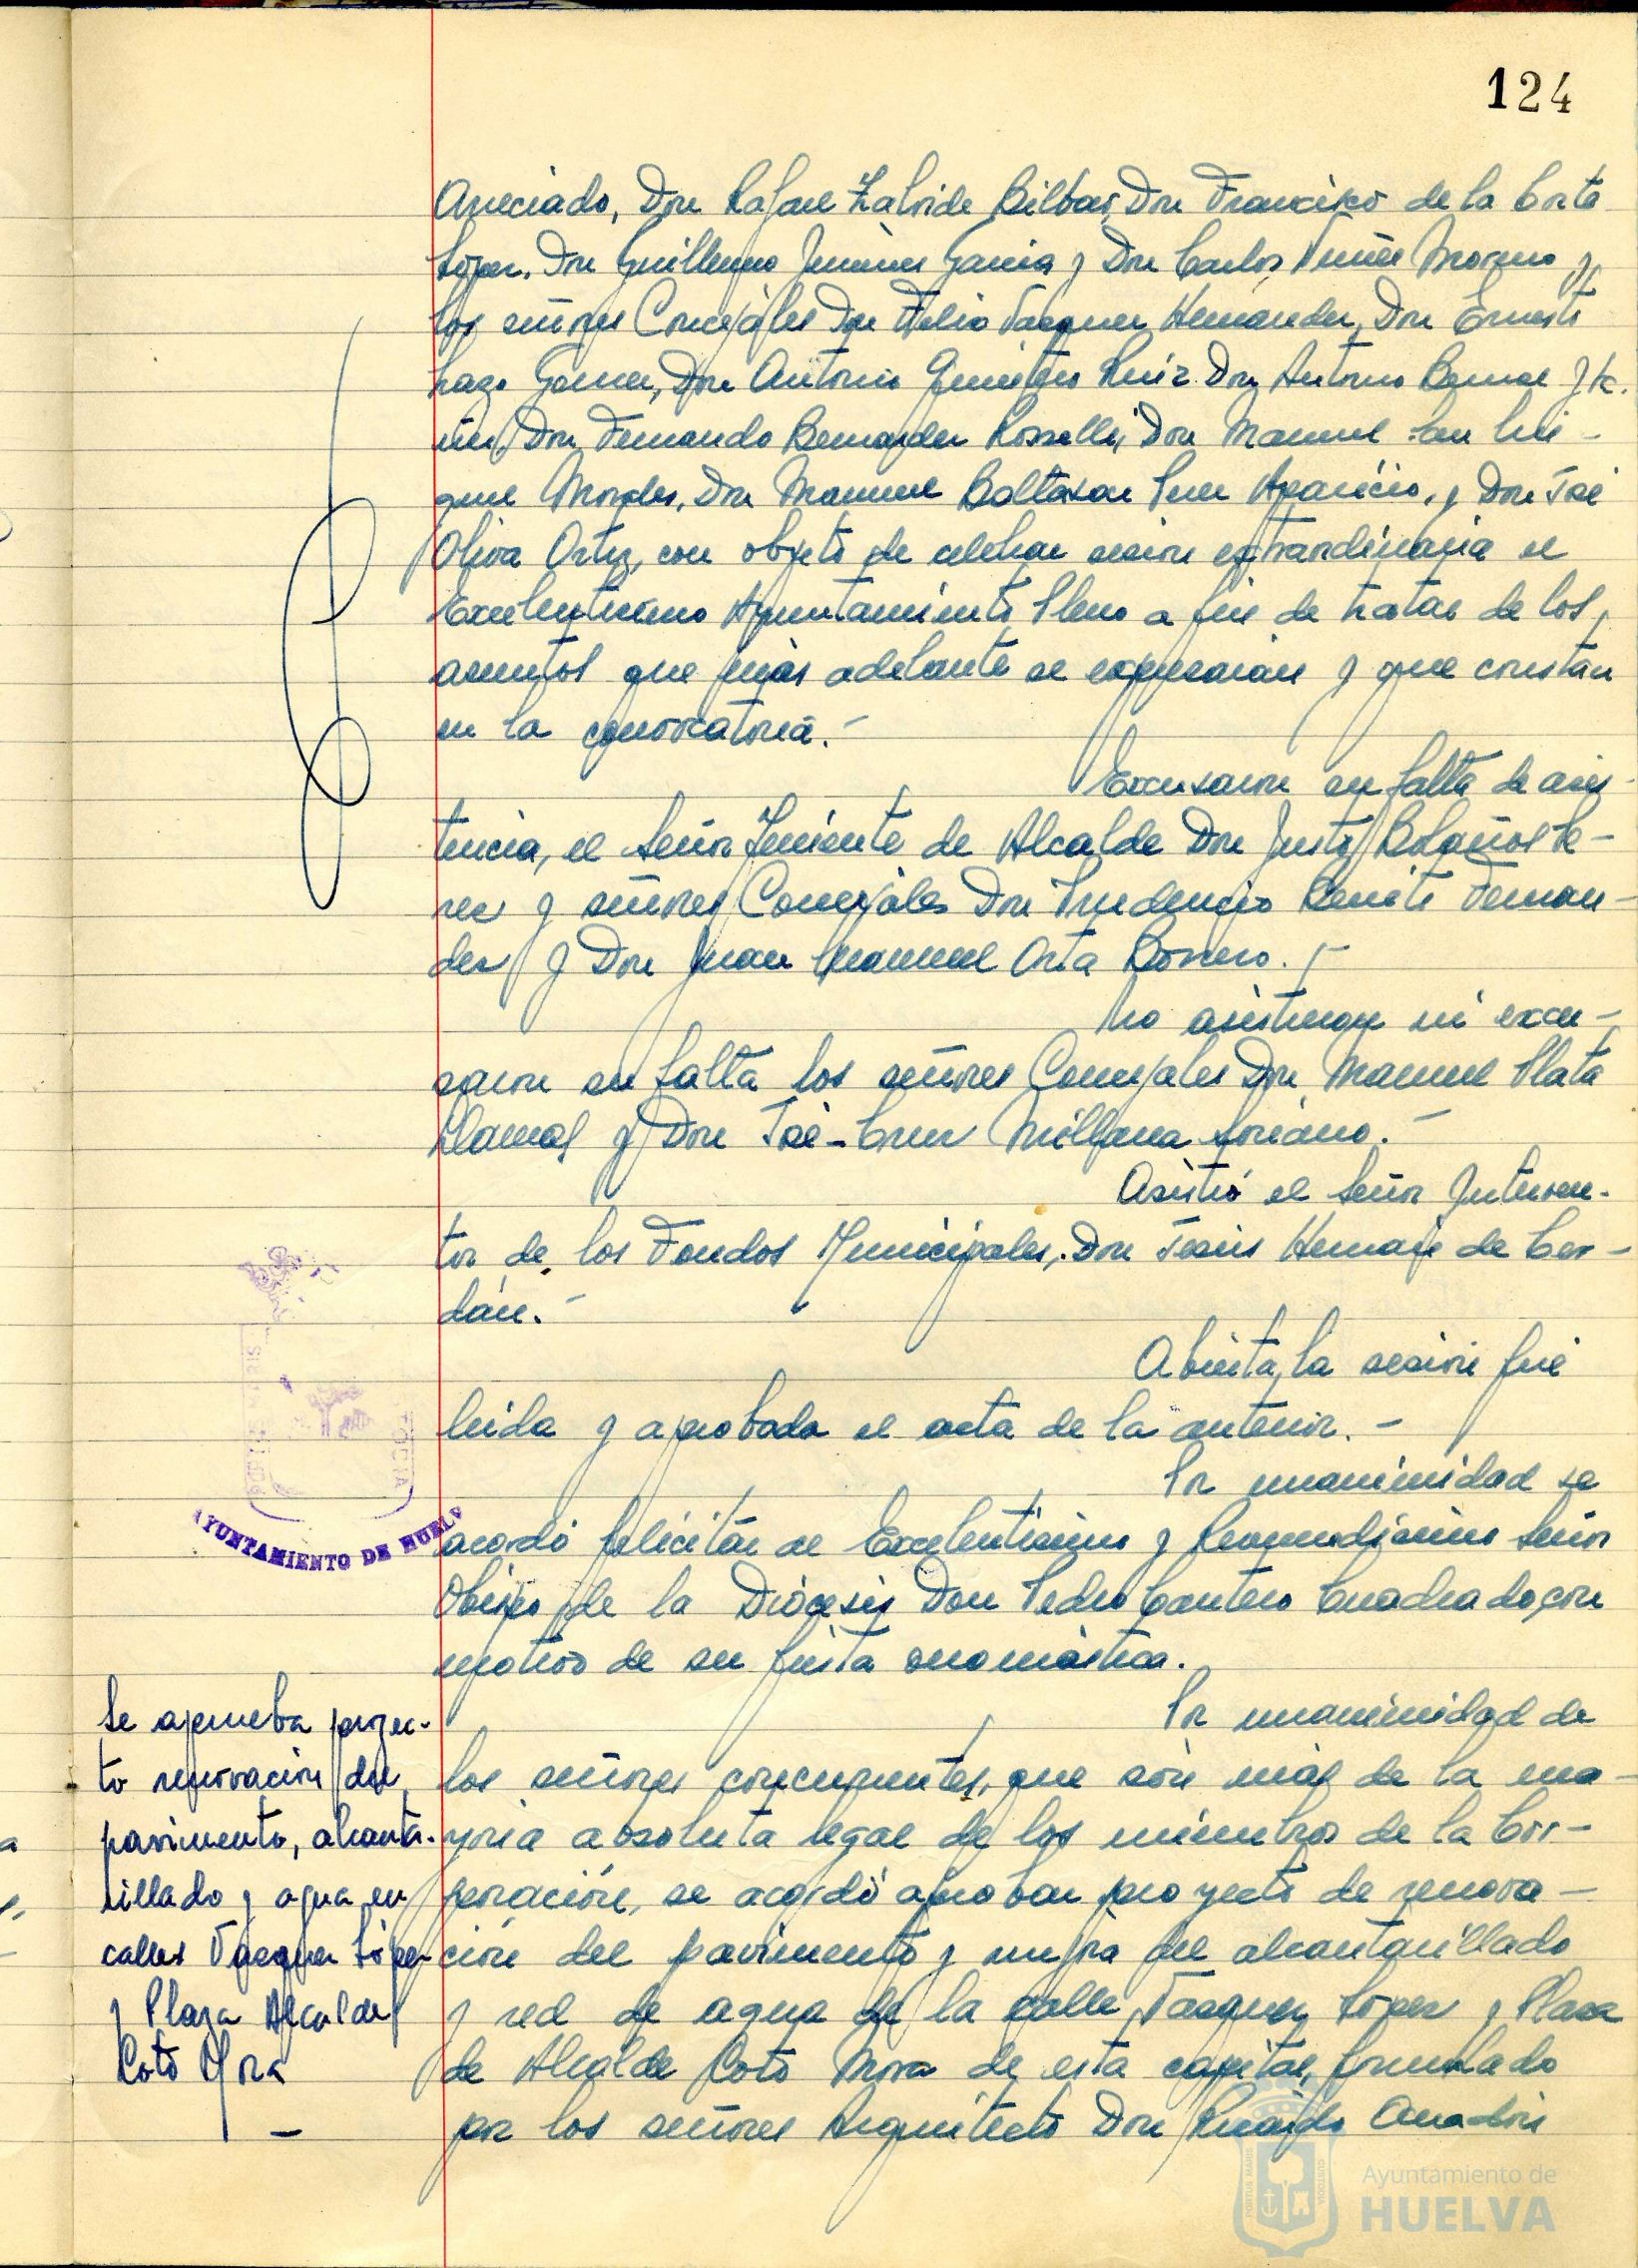 124
Don Rafael Zalvide Bilbao, Don Francisco de la Corte
López, Don Guillermo Jiménez García y Don Carlos Núñez Moreno y
los señores Concejales Don Vázquez Hernández, Don Ernesto
Lazo Gómez, Don Antonio Quintero Ruiz, Don Antonio Bernal
Don Fernando Bernardez Rosselló, Don Manuel San Mi-
guel Morales, Don Manuel Baltasar Aparicio, y Don José
Oliva Ortiz, con objeto de celebrar sesión extraordinaria el
Excelentísimo Ayuntamiento Pleno a fin de tratar de los
asuntos que más adelante se expresarán y que constan
en la convocatoria.-
Excusaron su falta de asis-
tencia, el Señor Teniente de Alcalde Don Justo Bolaños Pe-
rez y señores Concejales Don Prudencio Benito Fernan-
dez y Don Juan Manuel Orta Borrero.-
No asistieron ni excu-
saron su falta los señores Concejales Don Manuel Plata
Llamas y Don José-Cruz Millana Soriano.-
Asistió el Señor Interven-
tor de los Fondos Municipales, Don Jesús Hernaiz de Cer-
dán.-
Abierta la sesión fué
leida y aprobada el acta de la anterior.-
Por unanimidad se
acordó felicitar al Excelentísimo y Reverendísimo Señor
Obispo de la Diócesis Don Pedro Cantero Cuadrado, con
motivo de su fiesta onomástica.
Por unanimidad de
los señores concurrentes, que son más de la ma-
yoria absoluta legal de los miembros de la Cor-
poración, se acordó aprobar proyecto de renova-
ción del pavimento y mejora del alcantarillado
y red de agua de la calle Vázquez López y Plaza
de Alcalde Coto Mora de esta capital, formulado
por los señores Arquitecto Don Ricardo Anadón
Se aprueba proyec-
to renovación del
pavimento, alcanta-
rillado y agua en
calles Vázquez López
y Plaza Alcalde
Coto Mora
AYUNTAMIENTO DE HUELV
Ayuntamiento de
HUELVA